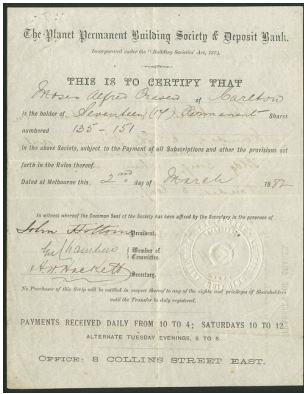 The Planet Permanent Building Society & Deposit Bank.
Incorporated under the "Building Societies' Act, 1874.
THIS IS TO CERTIFY THAT
Moses Alfred of Carlton
is the holder of Seventeen (17) Permanent Shares
numbered 135 - 151
in the above Society, subject to the Payment of all Subscriptions and other the provisions set
forth in the Rules thereof.
Dated at Melbourne this 2nd day of March 1882
In witness whereof the Common Seal of the Society has been affixed by the Secretary in the presence of
John President.
Chambers Member of Committee.
Hackett Secretary.
No Purchaser of this Scrip will be entitled in respect thereof to any of the rights and privileges of Shareholders
until the Transfer be duly registered.
PAYMENTS RECEIVED DAILY FROM 10 TO 4; SATURDAYS 10 TO 12
ALTERNATE TUESDAY EVENINGS, 6 TO 8.
OFFICE: 8 COLLINS STREET EAST.